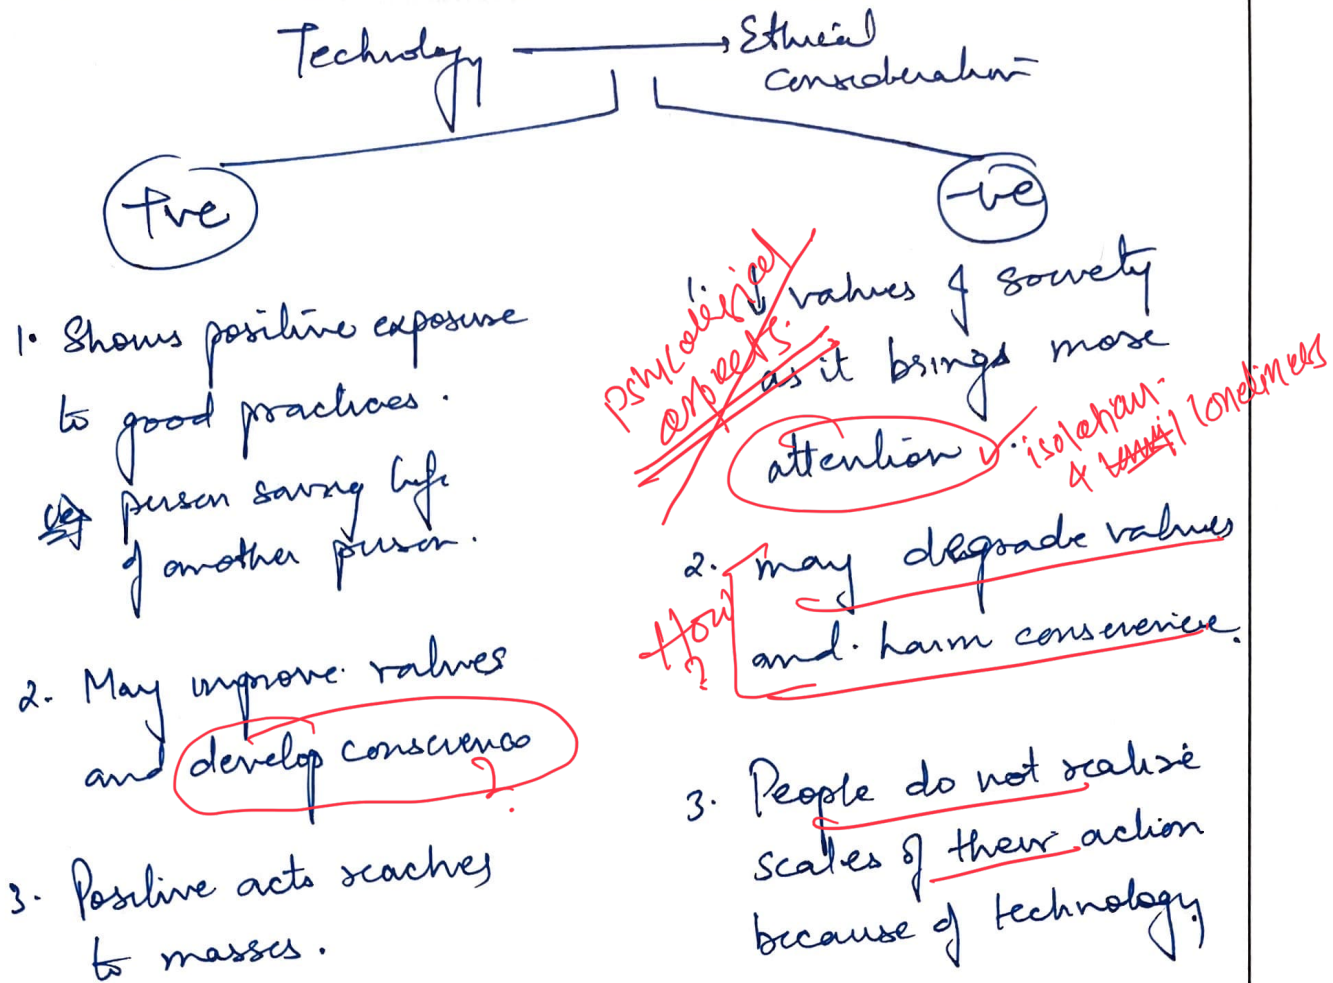 Technology → Ethical
consideration
+ve
-ve
1. Shows positive exposure
to good practices.
eg person saving life
of another person.
2. May improve values
and develop conscience
?
3. Positive acts reaches
to masses.
1. ↓ values of society
as it brings more
attention
psycological
aspects.
isolation
& loneliness
2. may degrade values
and harm conscience.
How
?
3. People do not realise
scales of their action
because of technology.